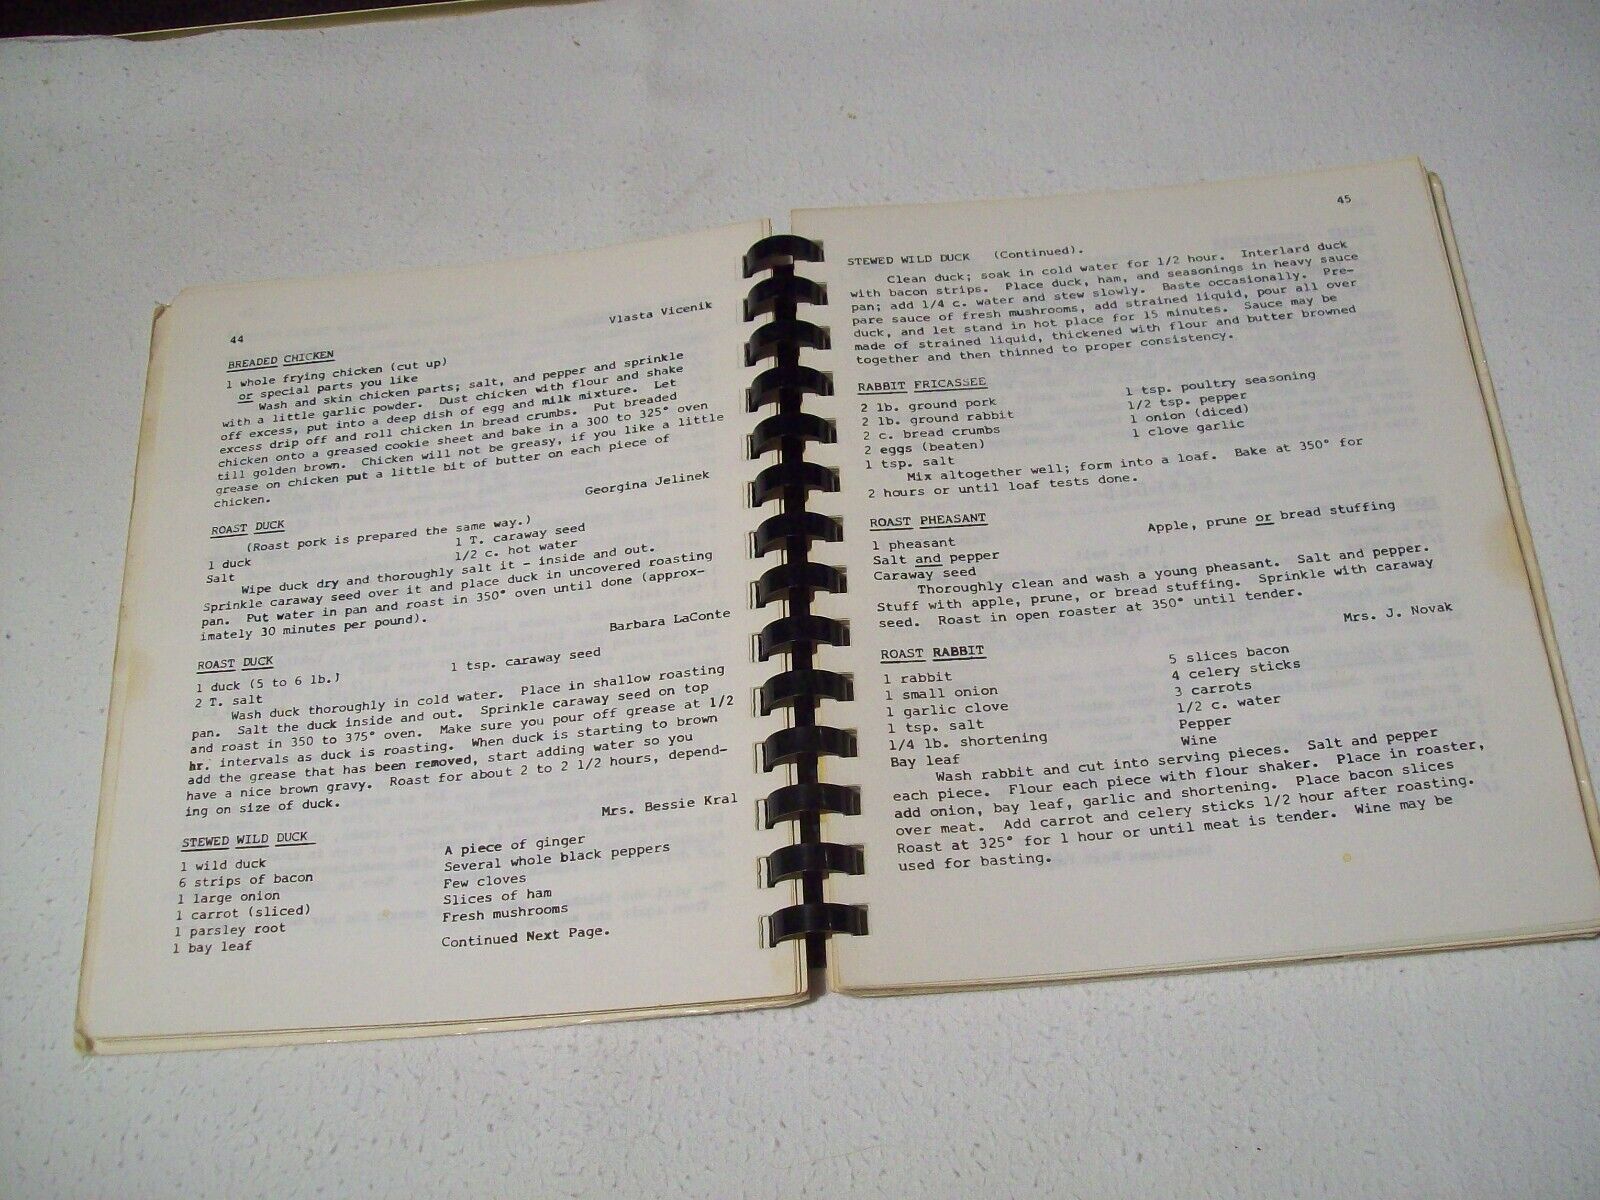 44
Vlasta Vicenik
BREADED CHICKEN
1 whole frying chicken (cut up)
or special parts you like
Wash and skin chicken parts; salt, and pepper and sprinkle
with a little garlic powder. Dust chicken with flour and shake
off excess, put into a deep dish of egg and milk mixture. Let
excess drip off and roll chicken in bread crumbs. Put breaded
chicken onto a greased cookie sheet and bake in a 300 to 325° oven
till golden brown. Chicken will not be greasy, if you like a little
grease on chicken put a little bit of butter on each piece of
chicken.
Georgina Jelinek
ROAST DUCK
(Roast pork is prepared the same way.)
1 duck 1 T. caraway seed
Salt 1/2 c. hot water
Wipe duck dry and thoroughly salt it - inside and out.
Sprinkle caraway seed over it and place duck in uncovered roasting
pan. Put water in pan and roast in 350° oven until done (approx-
imately 30 minutes per pound).
Barbara LaConte
ROAST DUCK
1 duck (5 to 6 lb.) 1 tsp. caraway seed
2 T. salt
Wash duck thoroughly in cold water. Place in shallow roasting
pan. Salt the duck inside and out. Sprinkle caraway seed on top
and roast in 350 to 375° oven. Make sure you pour off grease at 1/2
hr. intervals as duck is roasting. When duck is starting to brown
add the grease that has been removed, start adding water so you
have a nice brown gravy. Roast for about 2 to 2 1/2 hours, depend-
ing on size of duck.
Mrs. Bessie Kral
STEWED WILD DUCK
1 wild duck A piece of ginger
6 strips of bacon Several whole black peppers
1 large onion Few cloves
1 carrot (sliced) Slices of ham
1 parsley root Fresh mushrooms
1 bay leaf
Continued Next Page.
45
STEWED WILD DUCK (Continued).
Clean duck; soak in cold water for 1/2 hour. Interlard duck
with bacon strips. Place duck, ham, and seasonings in heavy sauce
pan; add 1/4 c. water and stew slowly. Baste occasionally. Pre-
pare sauce of fresh mushrooms, add strained liquid, pour all over
duck, and let stand in hot place for 15 minutes. Sauce may be
made of strained liquid, thickened with flour and butter browned
together and then thinned to proper consistency.
RABBIT FRICASSEE
2 lb. ground pork 1 tsp. poultry seasoning
2 lb. ground rabbit 1/2 tsp. pepper
2 c. bread crumbs 1 onion (diced)
2 eggs (beaten) 1 clove garlic
1 tsp. salt
Mix altogether well; form into a loaf. Bake at 350° for
2 hours or until loaf tests done.
ROAST PHEASANT
1 pheasant Apple, prune or bread stuffing
Salt and pepper
Caraway seed
Thoroughly clean and wash a young pheasant. Salt and pepper.
Stuff with apple, prune, or bread stuffing. Sprinkle with caraway
seed. Roast in open roaster at 350° until tender.
Mrs. J. Novak
ROAST RABBIT
1 rabbit 5 slices bacon
1 small onion 4 celery sticks
1 garlic clove 3 carrots
1 tsp. salt 1/2 c. water
1/4 lb. shortening Pepper
Bay leaf Wine
Wash rabbit and cut into serving pieces. Salt and pepper
each piece. Flour each piece with flour shaker. Place in roaster,
add onion, bay leaf, garlic and shortening. Place bacon slices
over meat. Add carrot and celery sticks 1/2 hour after roasting.
Roast at 325° for 1 hour or until meat is tender. Wine may be
used for basting.